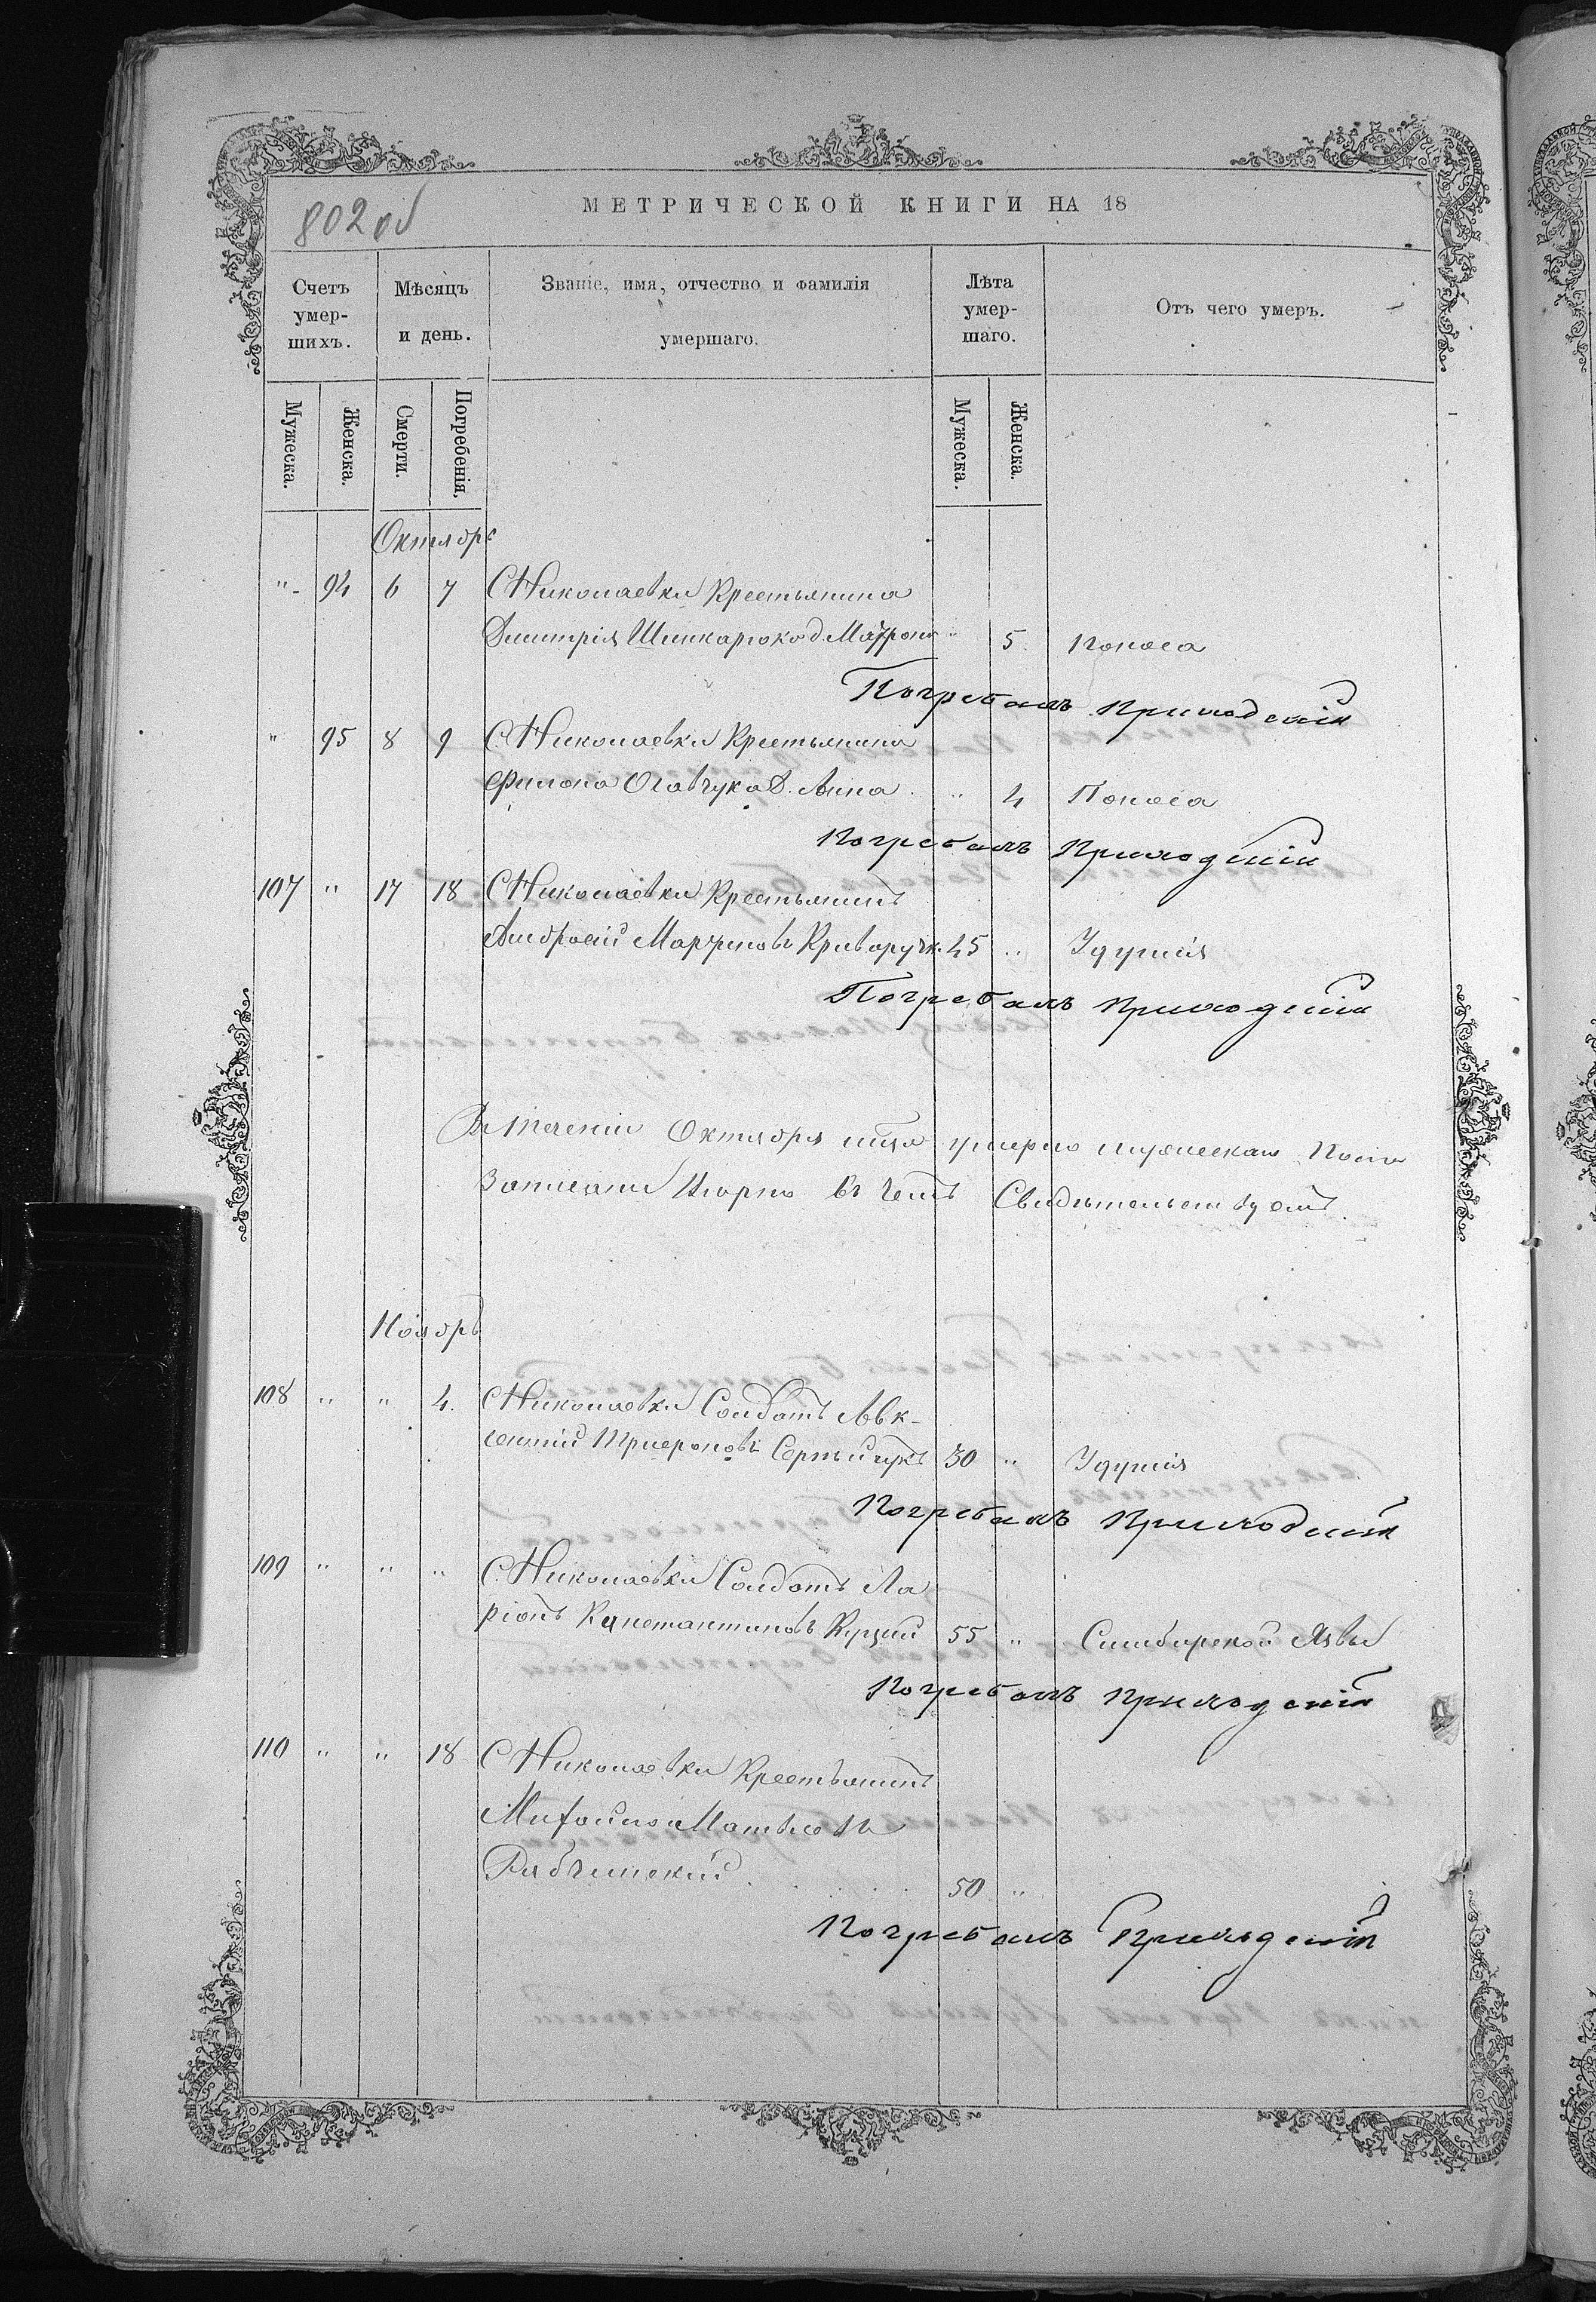 802 об
МЕТРИЧЕСКОЙ КНИГИ НА 18
Счетъ умер-шихъ.
Мѣсяцъ и день.
Званіе, имя, отчество и фамилія умершаго.
Лѣта умер-шаго.
Отъ чего умеръ.
Мужеска.
Женска.
Смерти.
Погребенія.
Мужеска.
Женска.
Октябрь
" 94 6 7 С Николаевки Крестьянина
Димитрія Шинкарюка д. Матрона " 5 Поноса
Погребалъ Приходскій
" 95 8 9 С. Николаевки Крестьянина
Филона д. Анна " 4 Поноса
Погребалъ Приходскій
107 " 17 18 С Николаевки Крестьянинъ
Амбросій Мартиновъ Криворучк. 45 " Удушія
Погребалъ Приходскій
Въ теченіи Октября умерло мужеска
Записаны въ Свидѣтельствуемъ.
Ноябрь
108 " " 4. С Николаевки Солдатъ Авк-
сентій 30 " Удушія
Погребалъ Приходскій
109 " " " С. Николаевки Солдатъ Ла
ріонъ Константиновъ Куций 55 " Сибирской Язвы
Погребалъ Приходскій
110 " " 18 С Николаевки Крестьянинъ
Михаило Матвѣевъ
Рябчинский 50 "
Погребалъ Приходскій